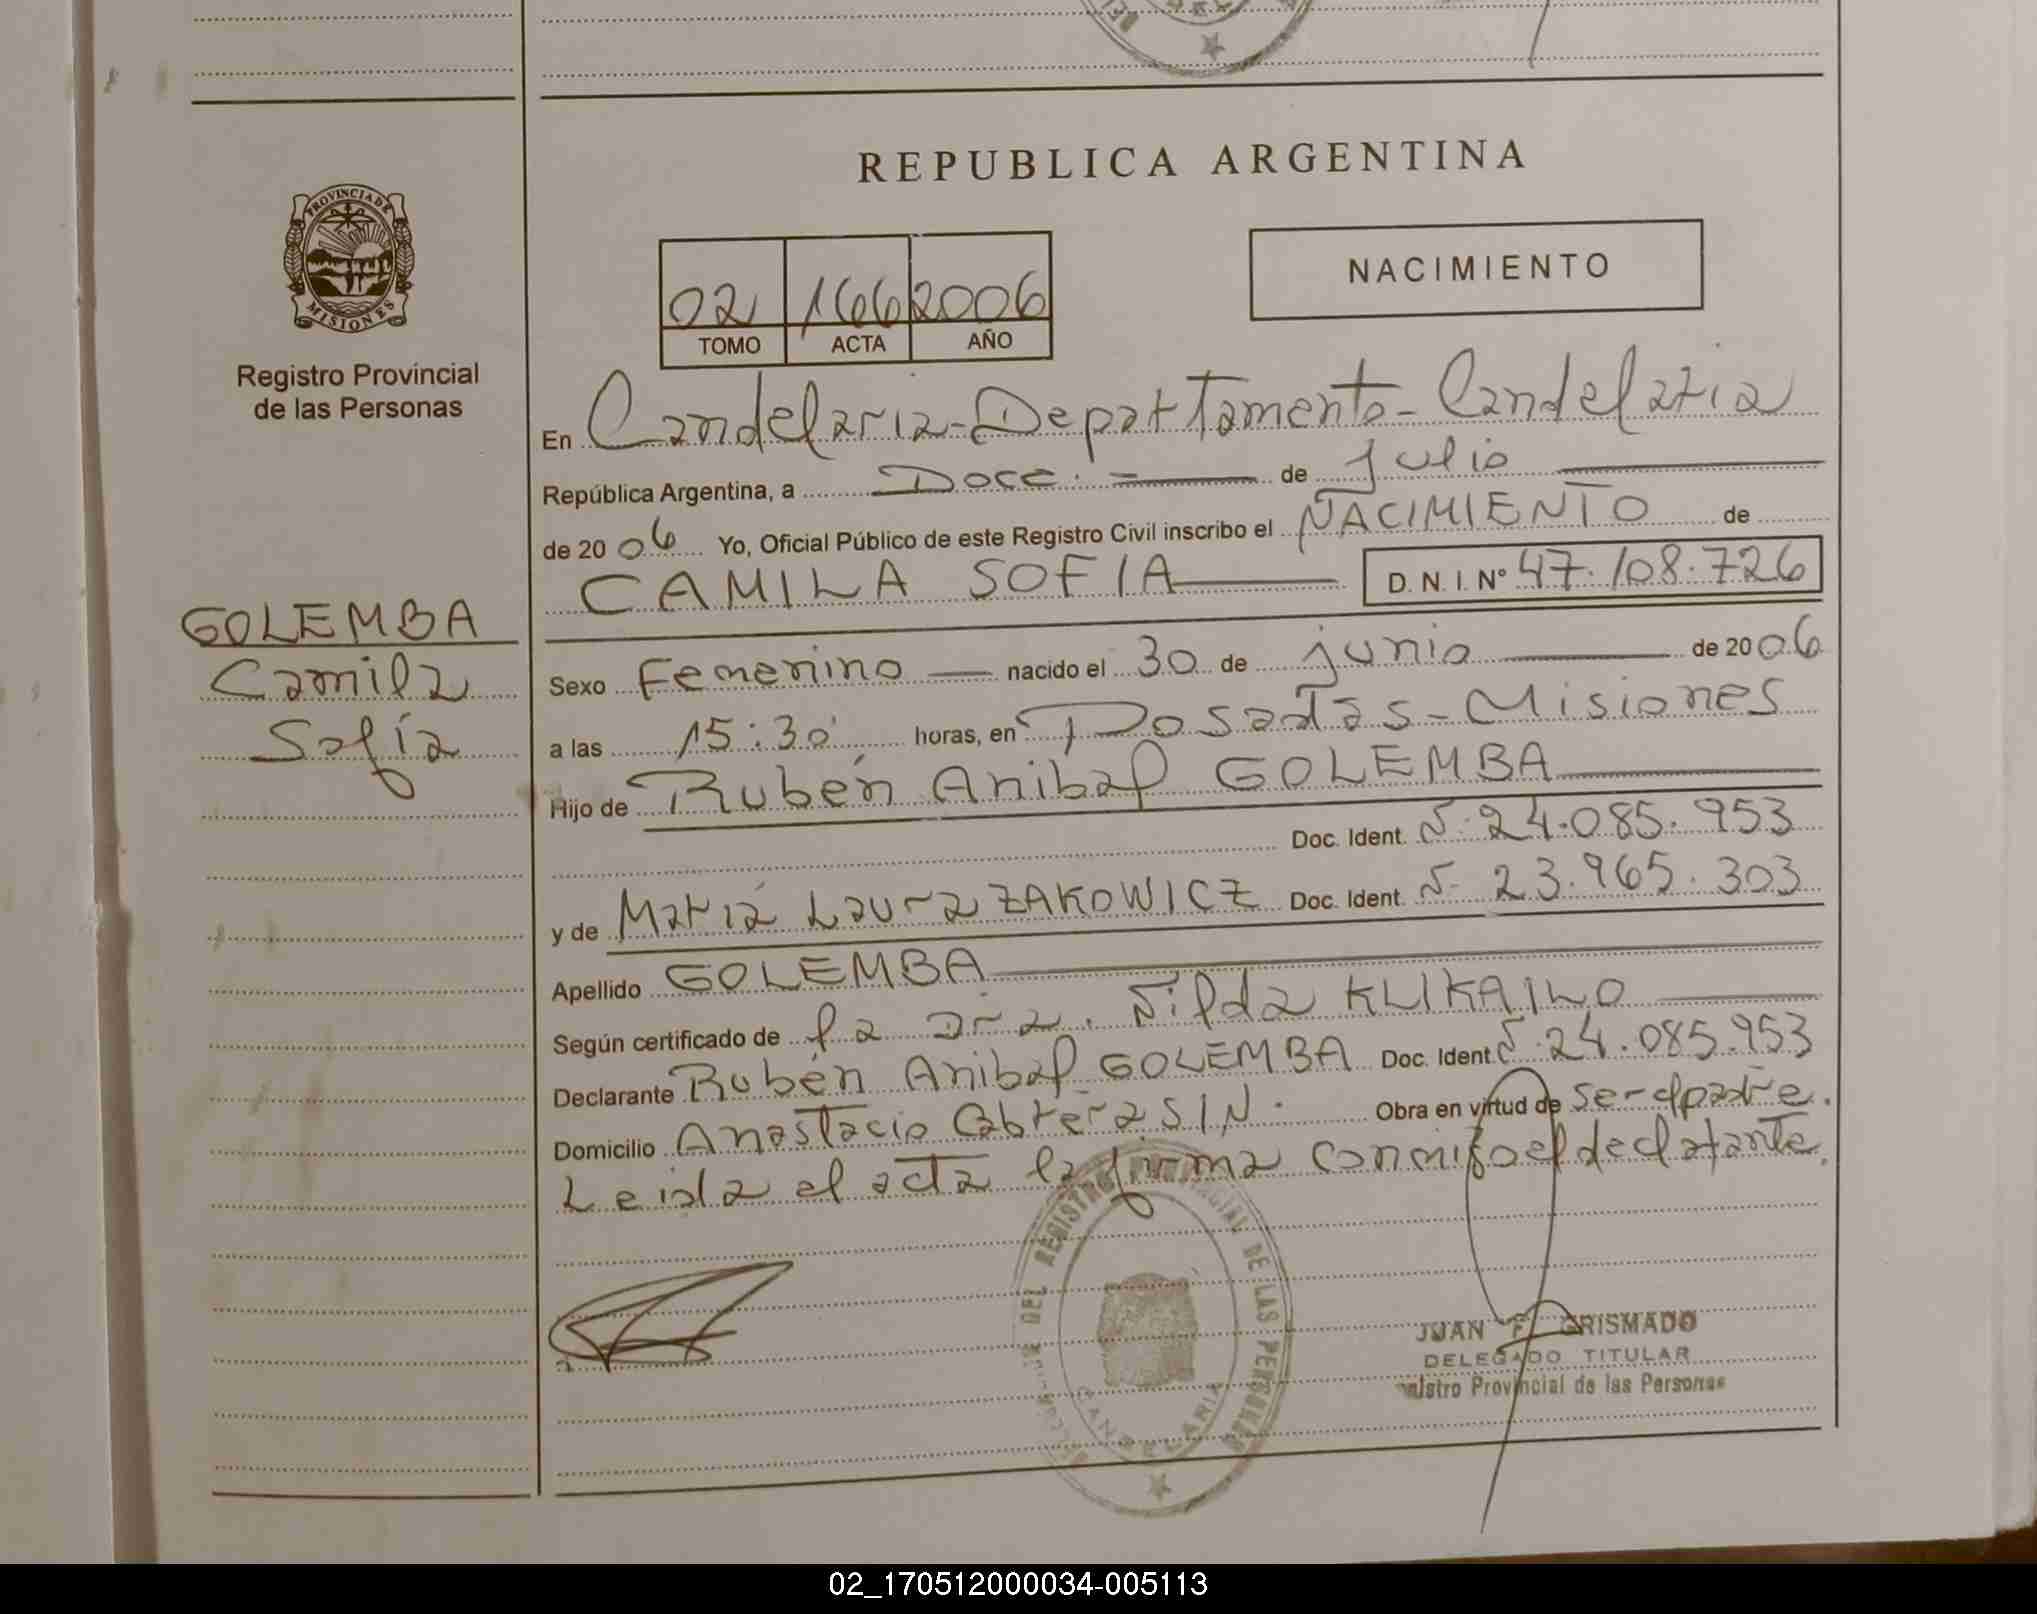 REPUBLICA ARGENTINA
PROVINCIA DE MISIONES
Registro Provincial
de las Personas
02 166 2006
TOMO ACTA AÑO
NACIMIENTO
En Candelaria - Departamento - Candelaria
República Argentina, a Doce. de Julio
de 2006 Yo, Oficial Público de este Registro Civil inscribo el NACIMIENTO de
CAMILA SOFIA D. N. I. Nº 47.108.726
GOLEMBA
Camila
Sofía
Sexo Femenino nacido el 30 de junio de 2006
a las 15:30 horas, en Posadas - Misiones
Hijo de Rubén Anibal GOLEMBA
Doc. Ident. N. 24.085.953
y de María Laura ZAKOWICZ Doc. Ident. N. 23.965.303
Apellido GOLEMBA
Según certificado de la Dra. Nilda KLIKAILO
Declarante Rubén Anibal GOLEMBA Doc. Ident N. 24.085.953
Domicilio Anastacio Cabrera S/N. Obra en virtud de ser el padre.
Leida el acta la firma conmigo el declarante.
DEL REGISTRO PROVINCIAL DE LAS PERSONAS
CANDELARIA
JUAN F. GRISMADO
DELEGADO TITULAR
Registro Provincial de las Personas
02_170512000034-005113